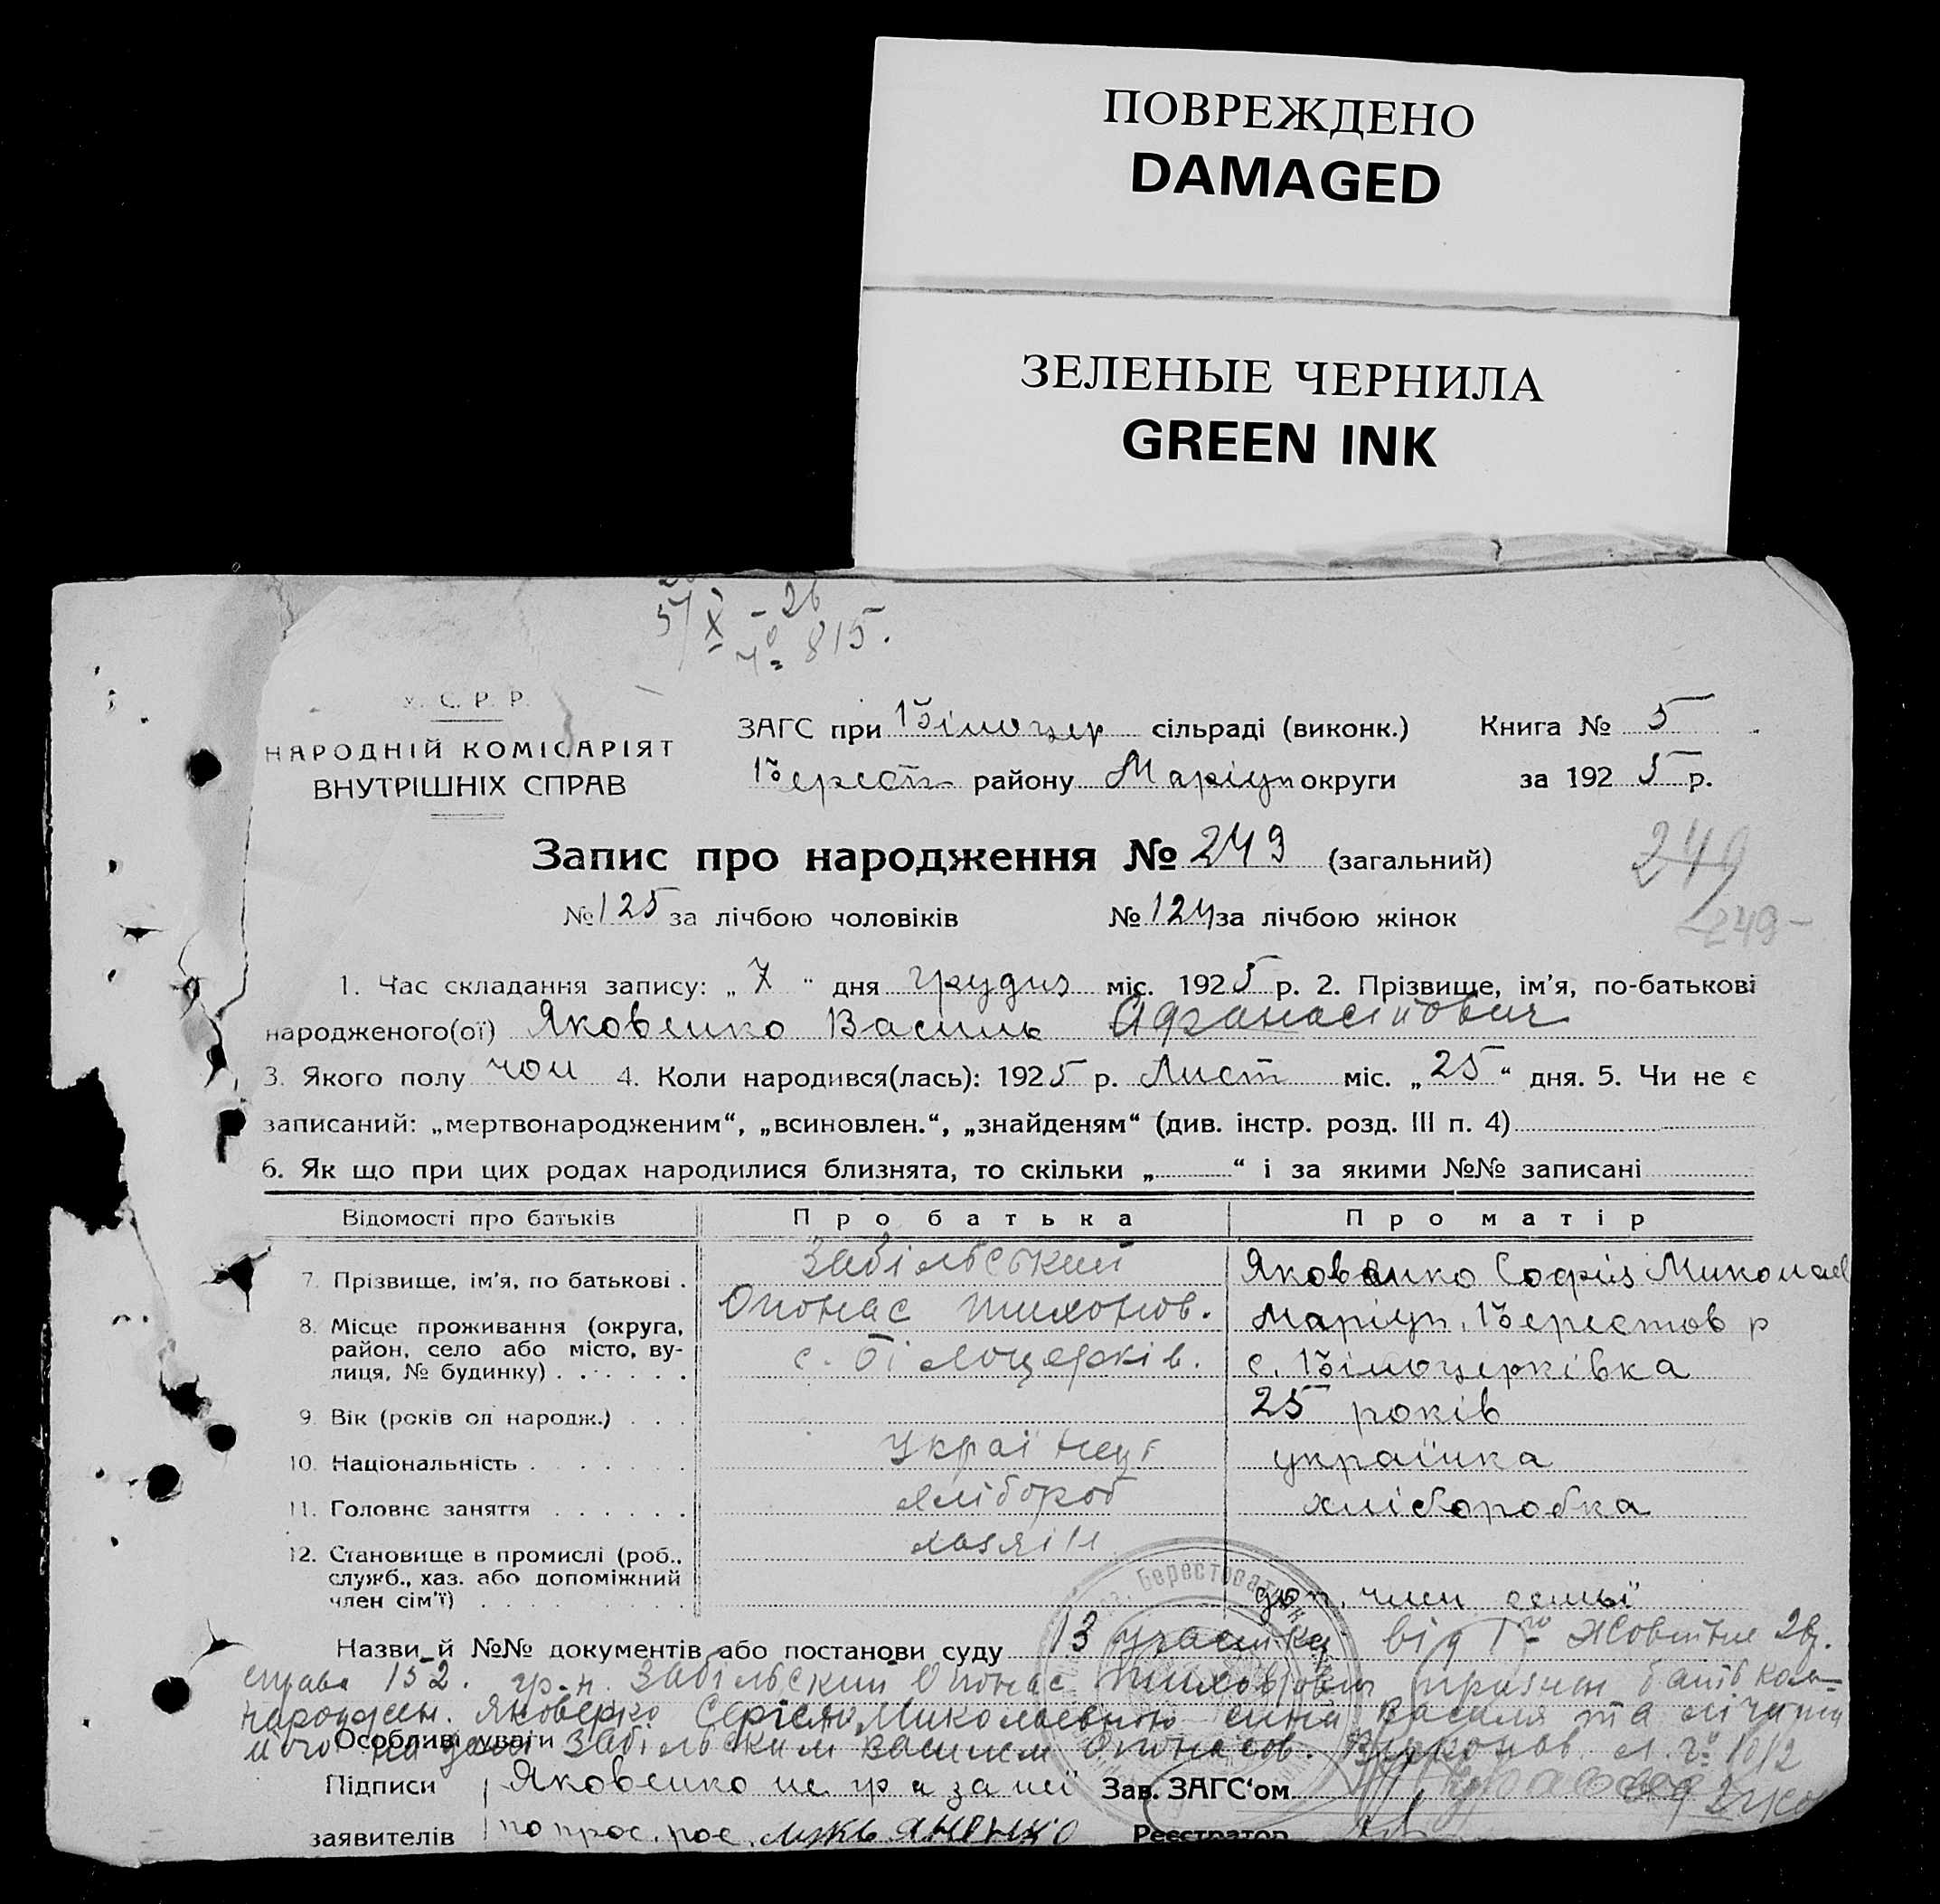 ПОВРЕЖДЕНО
DAMAGED
ЗЕЛЕНЫЕ ЧЕРНИЛА
GREEN INK
5/X - 26
№ 815.
У. С. Р. Р.
НАРОДНІЙ КОМІСАРІЯТ
ВНУТРІШНІХ СПРАВ
ЗАГС при Білоцер сільраді (виконк.) Книга № 5
Берест району Маріуп округи за 1925 р.
Запис про народження № 249 (загальний)
249
№ 125 за лічбою чоловіків № 124 за лічбою жінок
249-
1. Час складання запису: „ 7 " дня грудня міс. 1925 р. 2. Прізвище, ім'я, по-батькові
народженого(ої) Яковенко Василь Афанасійович
3. Якого полу чол 4. Коли народився(лась): 1925 р. Лист міс. „ 25 " дня. 5. Чи не є
записаний: „мертвонародженим", „всиновлен.", „знайденям" (див. інстр. розд. III п. 4)
6. Як що при цих родах народилися близнята, то скільки „ " і за якими №№ записані
Відомості про батьків Про батька Про матір
7. Прізвище, ім'я, по батькові . Забільський Яковенко Софія Миколаєв
Опонас Тихонов. Маріуп. Берестов р
8. Місце проживання (округа, район, село або місто, вулиця, № будинку) с. Білоцерків. с. Білоцерківка
9. Вік (років од народж.) 25 років
10. Національність Українец українка
11. Головнє заняття хлібороб хліборобка
12. Становище в промислі (роб., служб., хаз. або допоміжний член сім'ї) хазяїн доп. член семьї
Назви й №№ документів або постанови суду 13 участка від 1го Жовтня 26р.
справа 152. гр-н. Забільский Опонас Тихонович признан батьком
народжен. Яковенко Миколаєвною сина Василя та лічити
його Забільским Василем Опонасов.
Особливі уваги
Підписи Яковенко не гр а за неї Зав. ЗАГС'ом
заявителів по прос. рос. Реєстратор